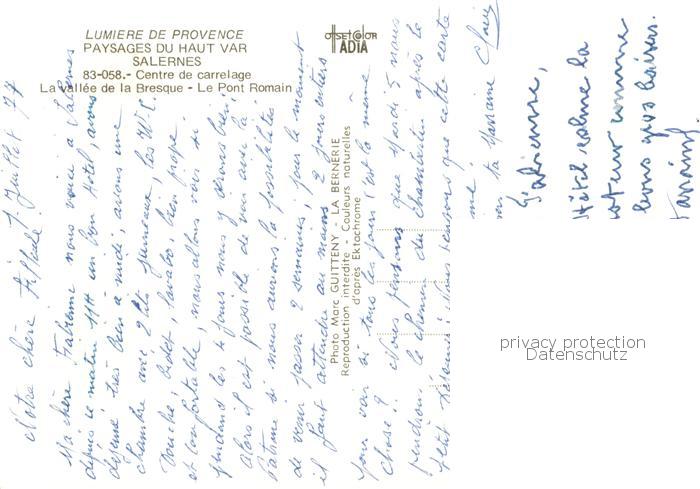 LUMIERE DE PROVENCE
PAYSAGES DU HAUT VAR
SALERNES
83-058.- Centre de carrelage
La vallée de la Bresque - Le Pont Romain
OFFSETCOLOR
ADIA
Photo Marc GUITTENY - LA BERNERIE
Reproduction interdite - Couleurs naturelles
d'après Ektachrome
Juillet 77
Notre chère
Ma chère Fabienne nous voici à Salernes
depuis ce matin 11H un bon Hotel, avons
déjeuné très bien à midi, avons une
chambre avec 2 lits jumeaux, les W.C.
Douche, bidet, lavabo, bien propre
et confortable, nous allons voir si
pendant les 4 jours nous y serons bien,
Alors il est possible de voir avec la
Patronne si nous aurons la possibilités
de venir passer 2 semaines, pour le moment
il faut attendre au moins 2 jours entiers
pour voir si tous les jours c'est la même
chose? Nous pensons que Mardi 5 nous
prendrons le chemin du
petit
que cette carte
ta Marraine
Hôtel calme la
comme
gros baisers.
privacy protection
Datenschutz